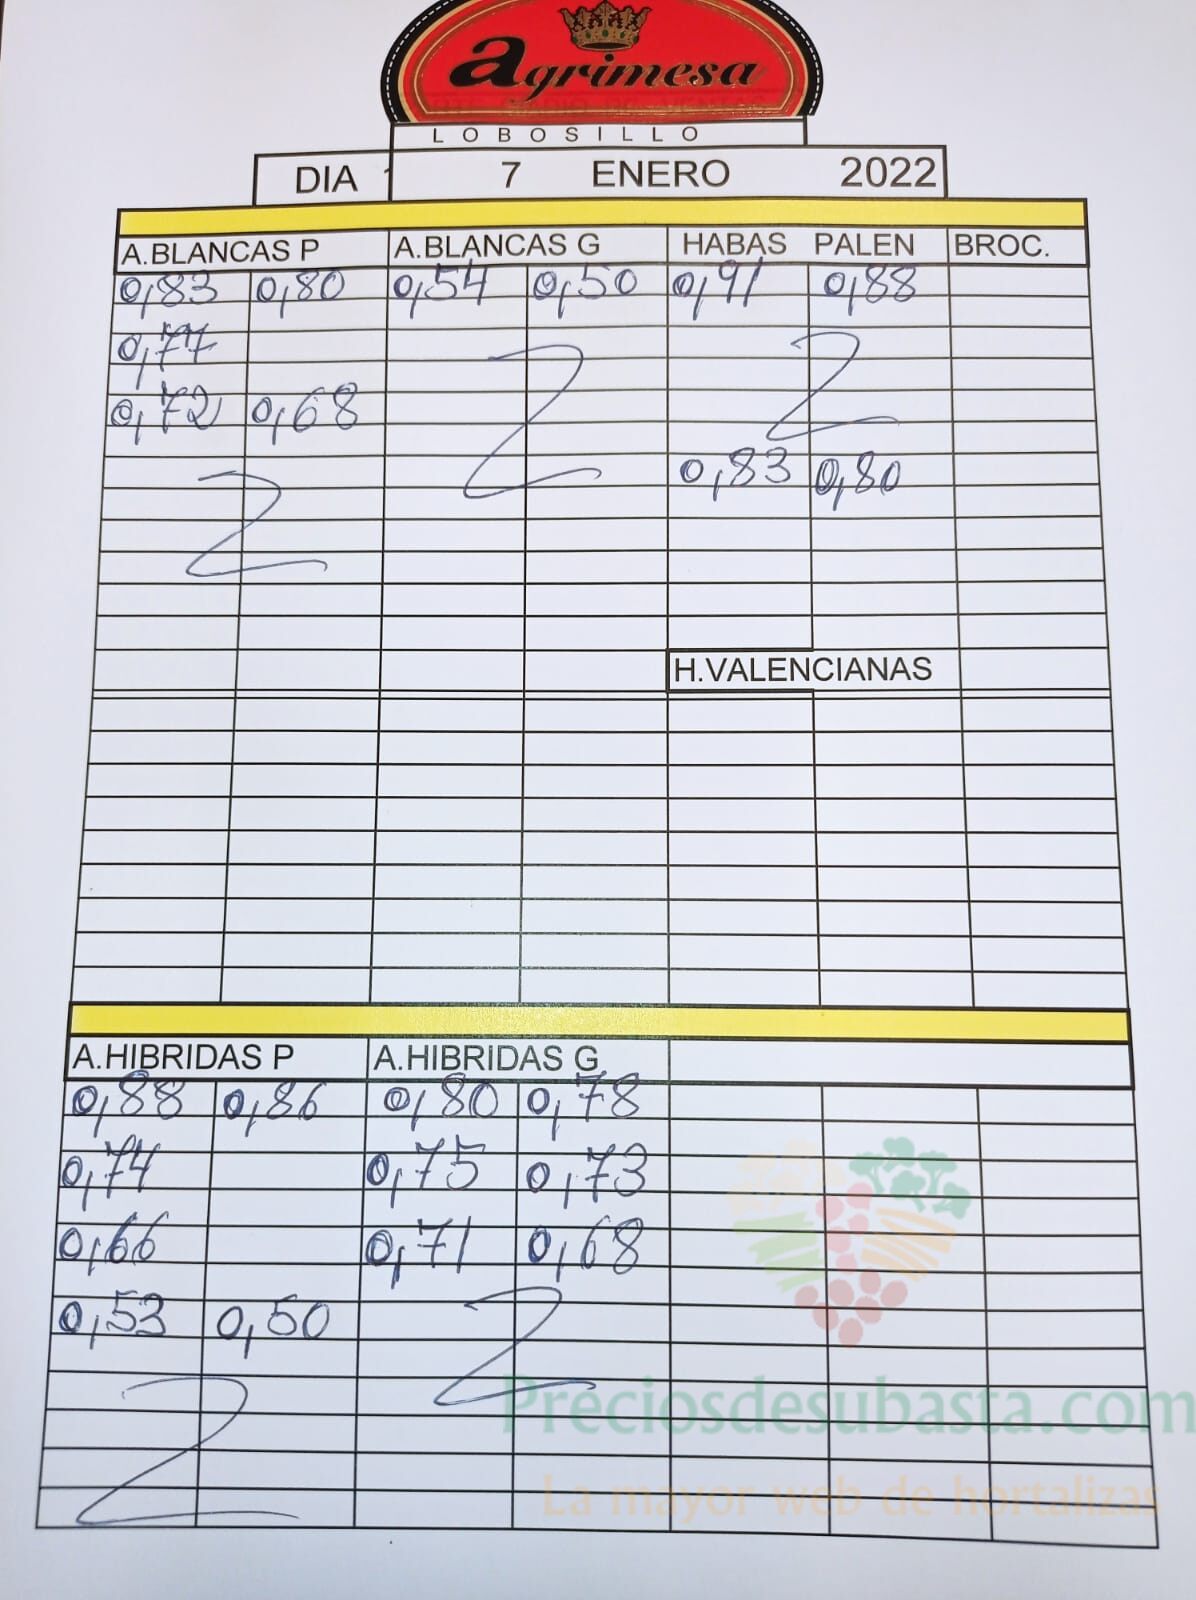 agrimesa
LOBOSILLO
DIA 7 ENERO 2022
A.BLANCAS P A.BLANCAS G HABAS PALEN BROC.
0,83 0,80 0,54 0,50 0,91 0,88
0,77
0,72 0,68
0,83 0,80
H.VALENCIANAS
A.HIBRIDAS P A.HIBRIDAS G
0,88 0,86 0,80 0,78
0,74 0,75 0,73
0,66 0,71 0,68
0,53 0,50
Preciosdesubasta.com
La mayor web de hortalizas